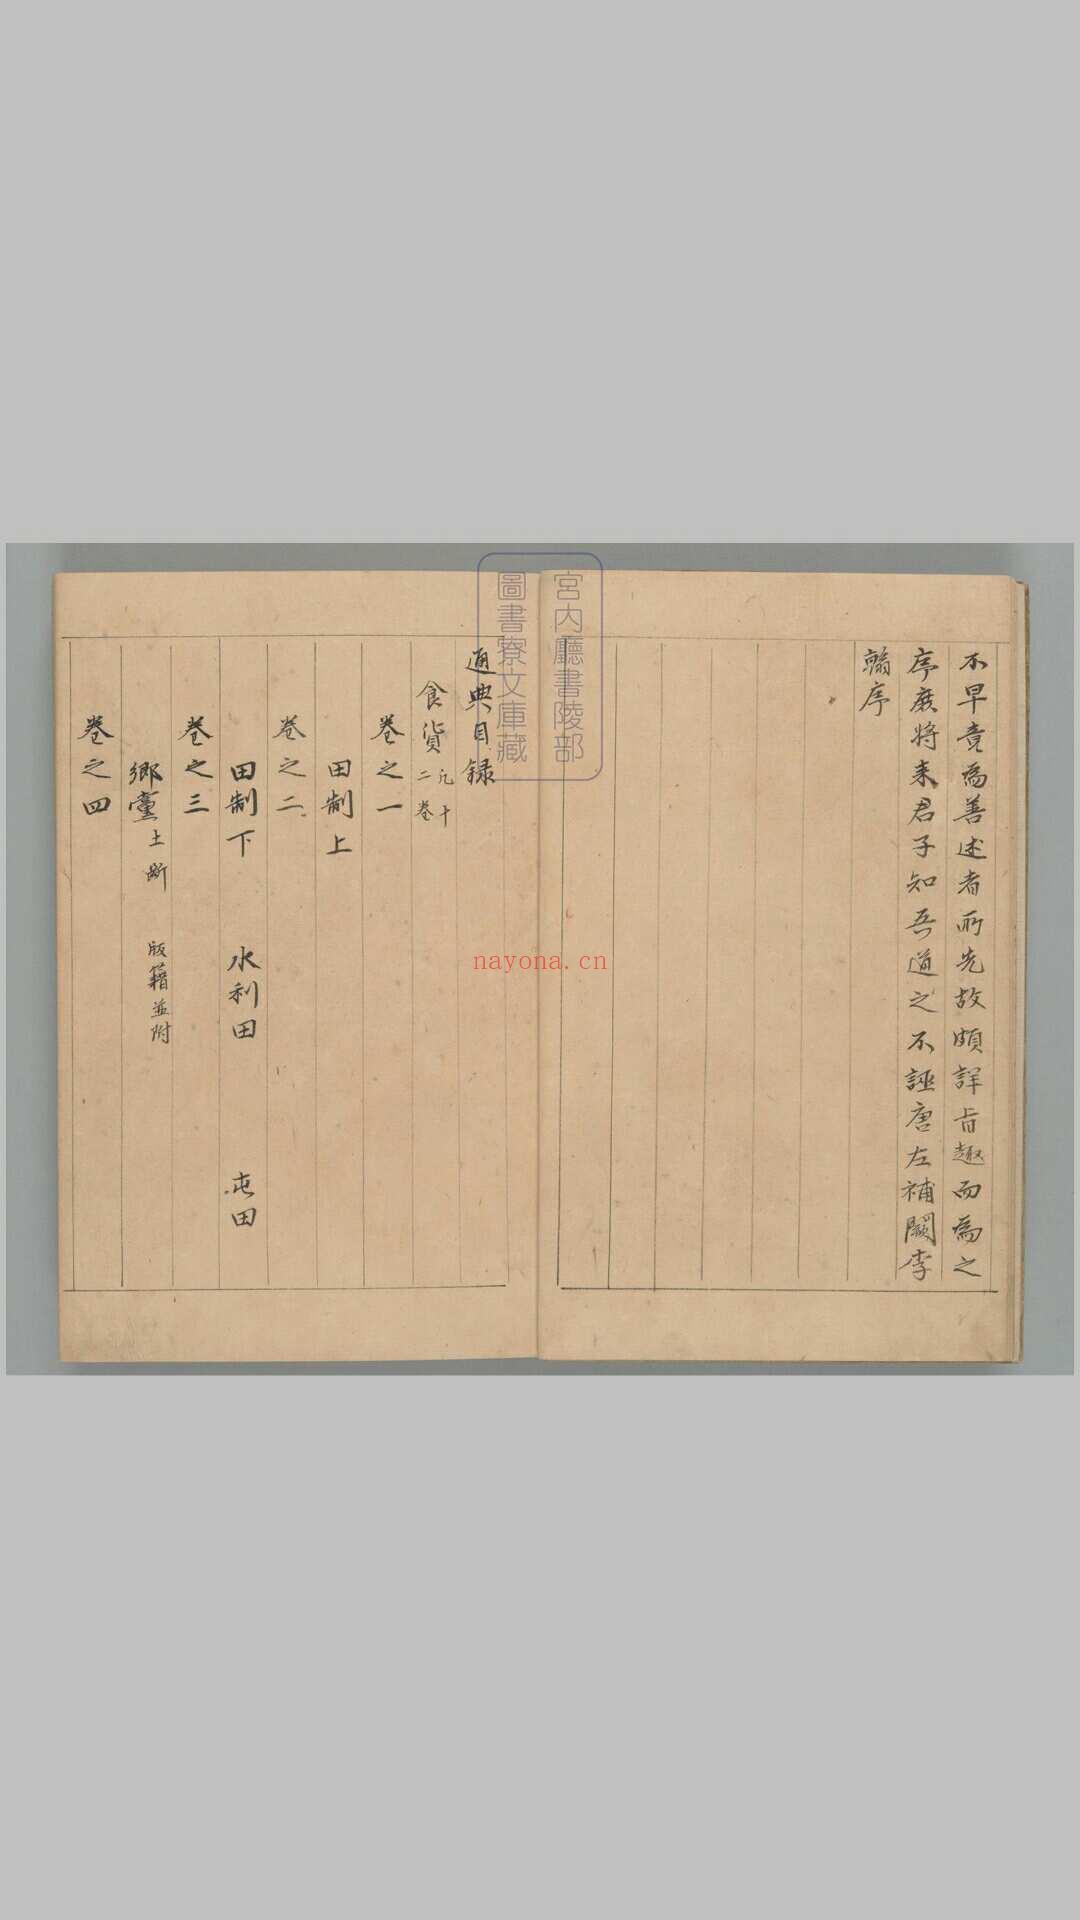 不早竟為善述者所先故頗詳旨趣而為之
序庶將来君子知吾道之不誣唐左補闕李
翰序
通典目録
食貨凡十二卷
卷之一
田制上
卷之二
田制下 水利田 屯田
卷之三
鄉黨土断 版籍並附
卷之四
宮内廳書陵部
圖書寮文庫藏
nayona.cn